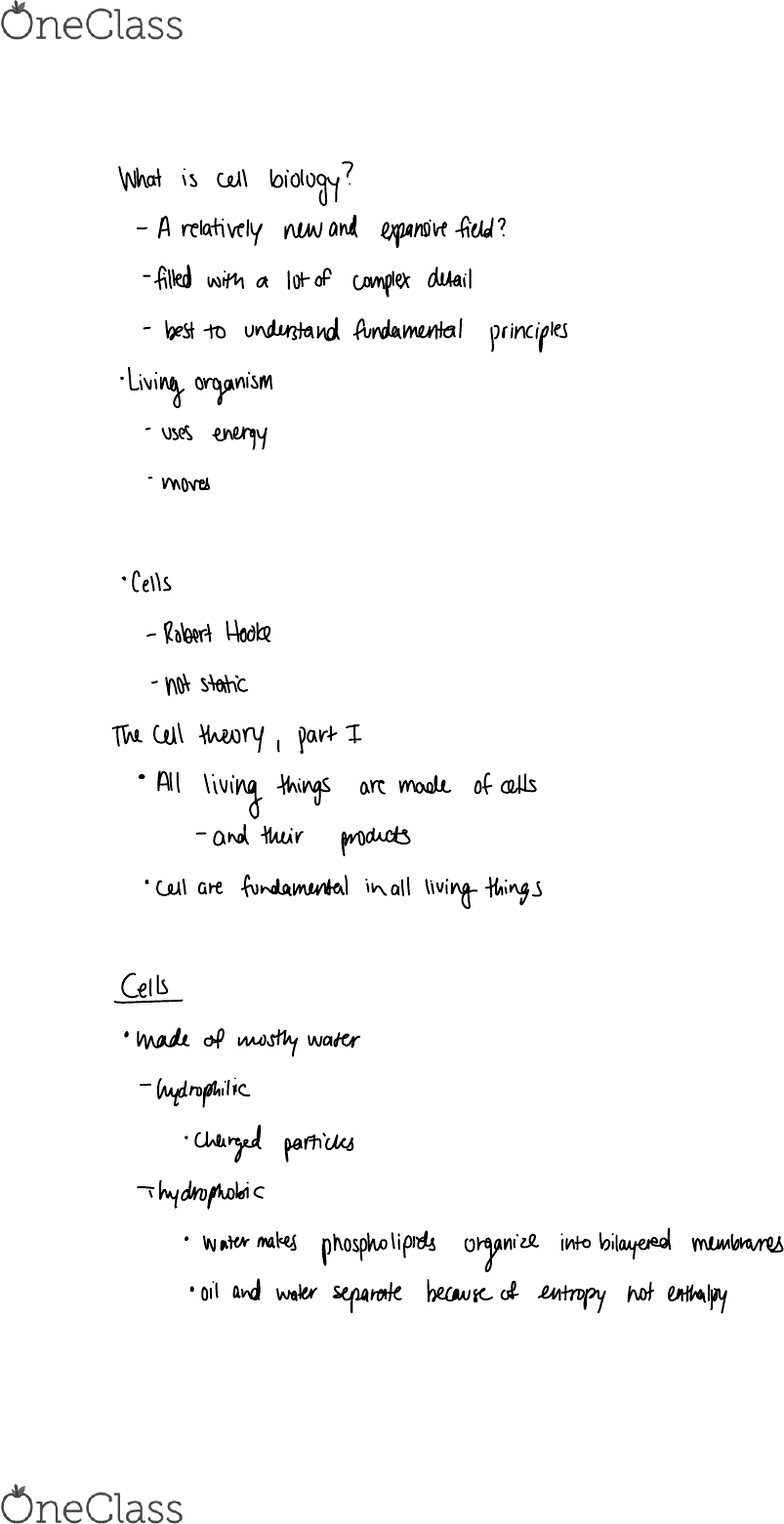 OneClass
What is cell biology?
- A relatively new and expansive field?
- filled with a lot of complex detail
- best to understand fundamental principles
• Living organism
- uses energy
- moves
• Cells
- Robert Hooke
- not static
The Cell theory, part I
• All living things are made of cells
- and their products
• Cell are fundamental in all living things
Cells
• made of mostly water
- hydrophilic
• Charged particles
- hydrophobic
• water makes phospholipids organize into bilayered membranes
• oil and water separate because of entropy not enthalpy
OneClass